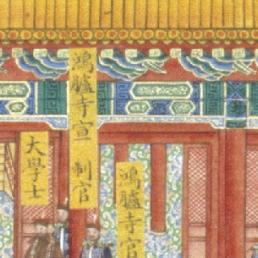 鴻臚寺宣制官
大學士
鴻臚寺官